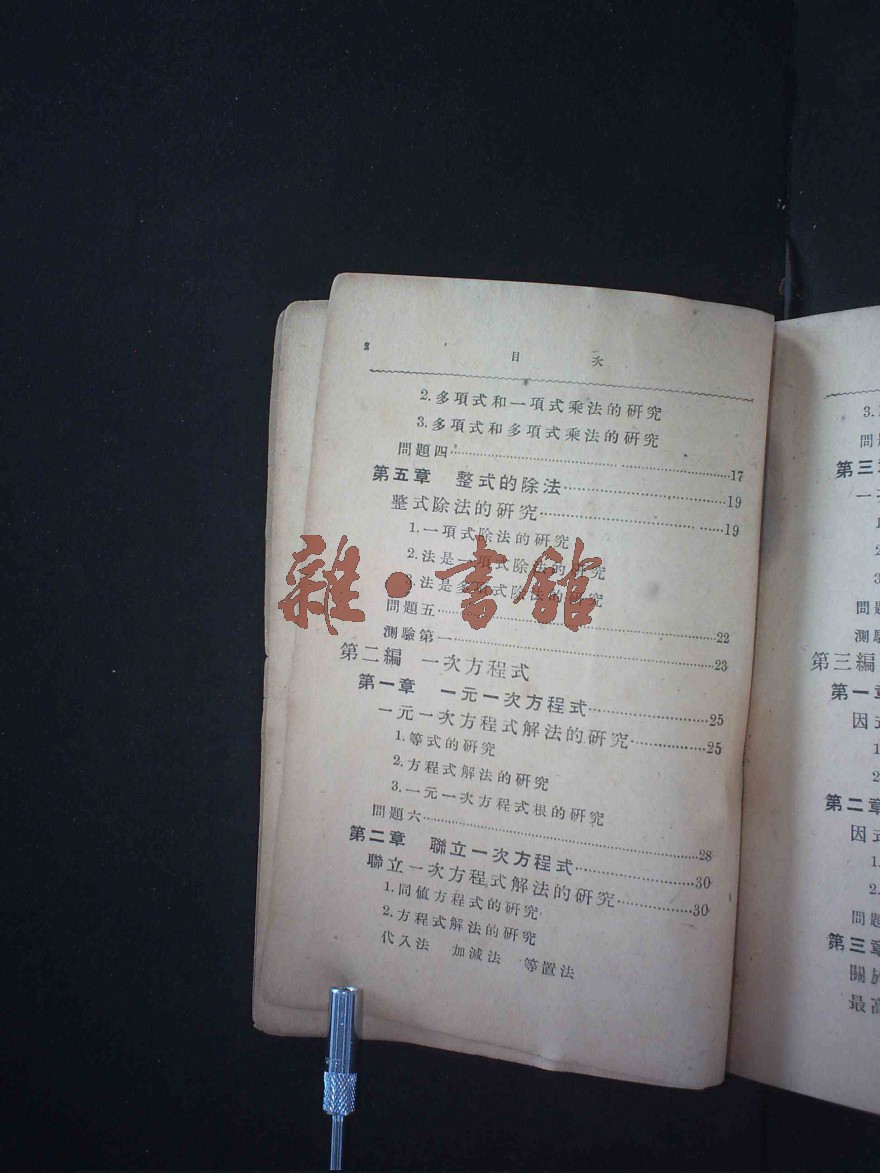 2
目 次
2.多項式和一項式乘法的研究
3.多項式和多項式乘法的研究
問題四……17
第五章 整式的除法……19
整式除法的研究……19
1.一項式除法的研究
2.法是一項式除法的研究
3.法是多項式除法的研究
問題五……22
測驗第一……23
第二編 一次方程式
第一章 一元一次方程式……25
一元一次方程式解法的研究……25
1.等式的研究
2.方程式解法的研究
3.一元一次方程式根的研究
問題六……28
第二章 聯立一次方程式……30
聯立一次方程式解法的研究……30
1.同值方程式的研究
2.方程式解法的研究
代入法 加減法 等置法
雜·書館
3.
問
第三
一
1
2
3
問
測驗
第三編
第一章
因式
1
2
第二章
因式
1.
2.
問題
第三章
關於
最高